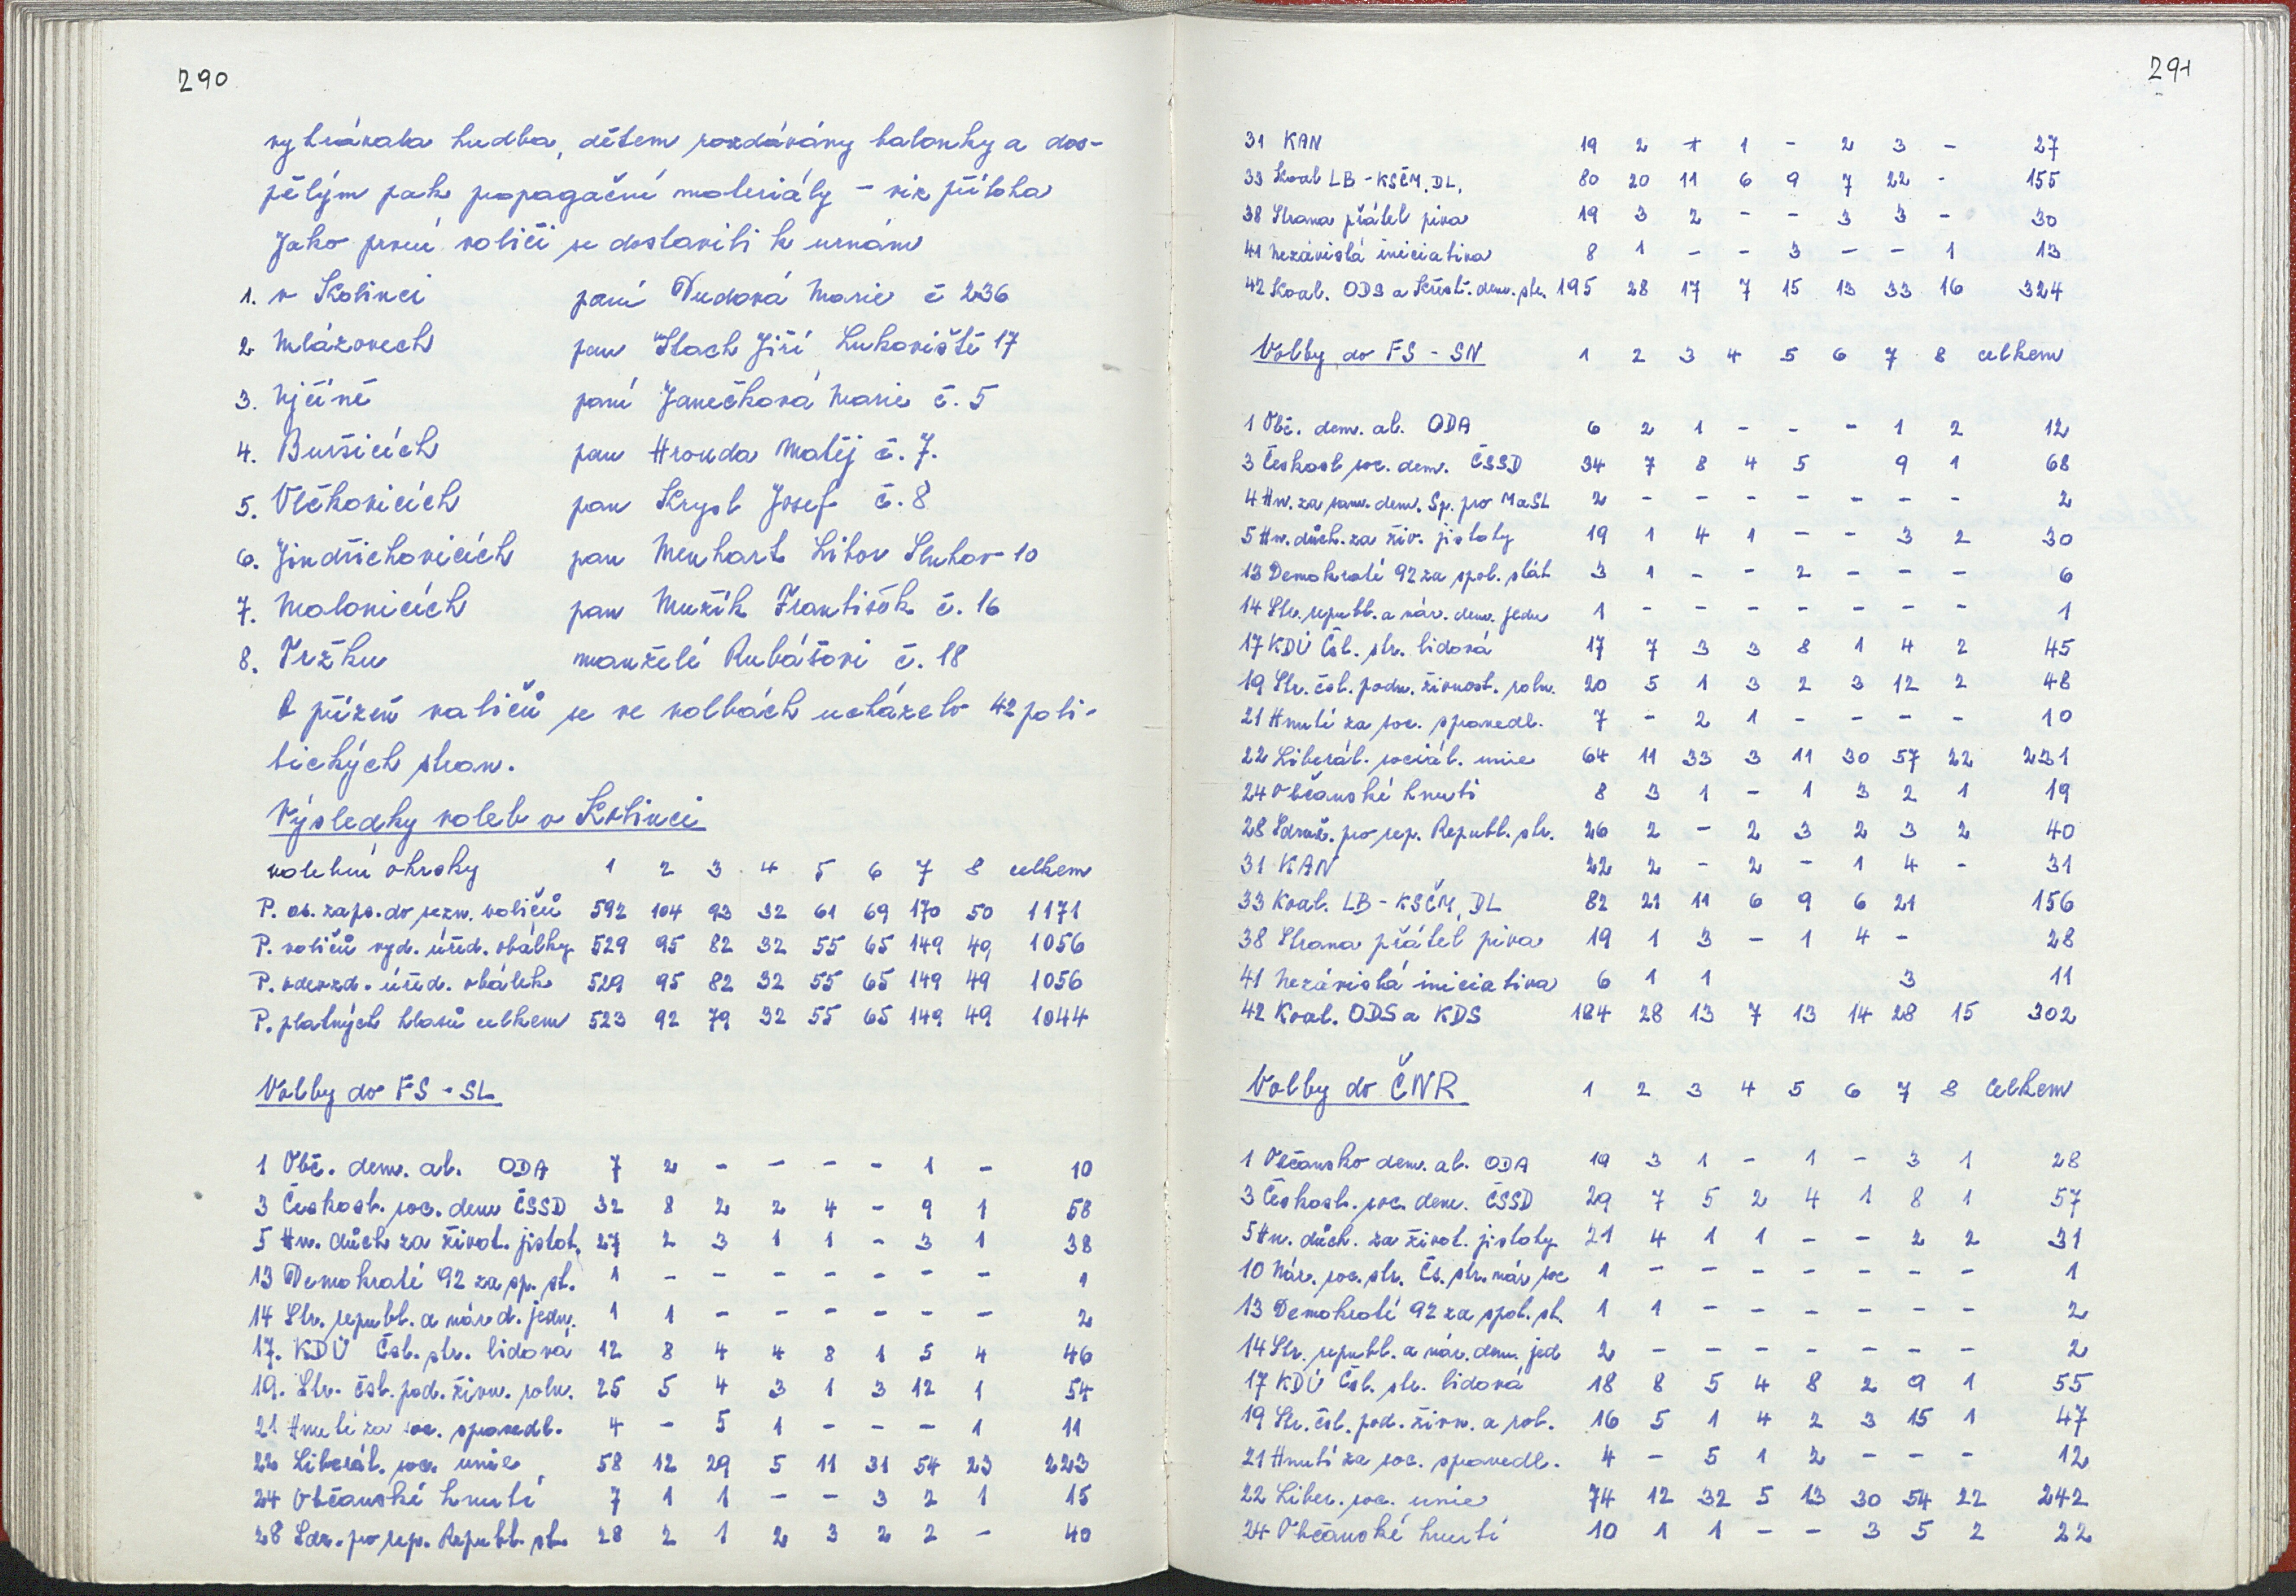 290
vyhrávala hudba, dětem rozdávány balonky a dos-
pělým pak propagační materiály - viz příloha
Jako první voliči se dostavili k urnám
1. v Kolinci paní Dudová Marie č 236
2 Mlázovech pan Stach Jiří Lukoviště 17
3. Ujčíně paní Janečková Marie č. 5
4. Buršicích pan Hrouda Matěj č. 7.
5. Vlčkovicích pan Krysl Josef č. 8
6. Jindřichovicích pan Menhart Libor Sluhov 10
7. Malonicích pan Mužík František č. 16
8. Tržku manželé Rubášovi č. 18
O přízeň voličů se ve volbách ucházelo 42 poli-
tických stran.
Výsledky voleb v Kolinci
volební okrsky 1 2 3 4 5 6 7 8 celkem
P. os. zaps. do sezn. voličů 592 104 93 32 61 69 170 50 1171
P. voličů vyd. úřed. obálky 529 95 82 32 55 65 149 49 1056
P. odevzd. úřed. obálek 529 95 82 32 55 65 149 49 1056
P. platných hlasů celkem 523 92 79 32 55 65 149 49 1044
Volby do FS - SL
1 Obč. dem. al. ODA 7 2 - - - - 1 - 10
3 Českosl. soc. dem ČSSD 32 8 2 2 4 - 9 1 58
5 Hn. důch za život. jistot. 27 2 3 1 1 - 3 1 38
13 Demokraté 92 za sp. st. 1 - - - - - - - 1
14 Str. republ. a národ. jedn. 1 1 - - - - - - 2
17. KDÚ Čsl. str. lidová 12 8 4 4 8 1 5 4 46
19. Str. čsl. pod. živn. roln. 25 5 4 3 1 3 12 1 54
21 Hnutí za soc. spravedl. 4 - 5 1 - - - 1 11
22 Liberál. soc. unie 58 12 29 5 11 31 54 23 223
24 Občanské hnutí 7 1 1 - - 3 2 1 15
28 Sdr. pro rep. Republ. st. 28 2 1 2 3 2 2 - 40
291
31 KAN 19 2 + 1 - 2 3 - 27
33 Koal LB - KSČM, DL, 80 20 11 6 9 7 22 - 155
38 Strana přátel piva 19 3 2 - - 3 3 - 30
41 Nezávislá iniciativa 8 1 - - 3 - - 1 13
42 Koal. ODS a Křesť. dem. str. 195 28 17 7 15 13 33 16 324
Volby do FS - SN 1 2 3 4 5 6 7 8 celkem
1 Obč. dem. al. ODA 6 2 1 - - - 1 2 12
3 Českosl soc. dem. ČSSD 34 7 8 4 5 9 1 68
4 Hn. za sam. dem. Sp. pro MaSL 2 - - - - - - - 2
5 Hn. důch. za živ. jistoty 19 1 4 1 - - 3 2 30
13 Demokraté 92 za spol. stát 3 1 - - 2 - - - 6
14 Str. republ. a nár. dem. jedn 1 - - - - - - - 1
17 KDÚ Čsl. str. lidová 17 7 3 3 8 1 4 2 45
19 Str. čsl. podn. živnost. roln. 20 5 1 3 2 3 12 2 48
21 Hnutí za soc. spravedl. 7 - 2 1 - - - - 10
22 Liberál. sociál. unie 64 11 33 3 11 30 57 22 231
24 Občanské hnutí 8 3 1 - 1 3 2 1 19
28 Sdruž. pro rep. Republ. str. 26 2 - 2 3 2 3 2 40
31 KAN 22 2 - 2 - 1 4 - 31
33 Koal. LB - KSČM, DL 82 21 11 6 9 6 21 156
38 Strana přátel piva 19 1 3 - 1 4 - 28
41 Nezávislá iniciativa 6 1 1 3 11
42 Koal. ODS a KDS 184 28 13 7 13 14 28 15 302
Volby do ČNR 1 2 3 4 5 6 7 8 Celkem
1 Občansko dem. al. ODA 19 3 1 - 1 - 3 1 28
3 Českosl. soc. dem. ČSSD 29 7 5 2 4 1 8 1 57
5 Hn. důch. za život. jistoty 21 4 1 1 - - 2 2 31
10 Nár. soc. str. Čs. str. nár soc 1 - - - - - - - 1
13 Demokraté 92 za spol. st. 1 1 - - - - - - 2
14 Str. republ. a nár. dem. jed 2 - - - - - - - 2
17 KDÚ Čsl. str. lidová 18 8 5 4 8 2 9 1 55
19 Str. čsl. pod. živn. a rol. 16 5 1 4 2 3 15 1 47
21 Hnutí za soc. spravedl. 4 - 5 1 2 - - - 12
22 Liber. soc. unie 74 12 32 5 13 30 54 22 242
24 Občanské hnutí 10 1 1 - - 3 5 2 22